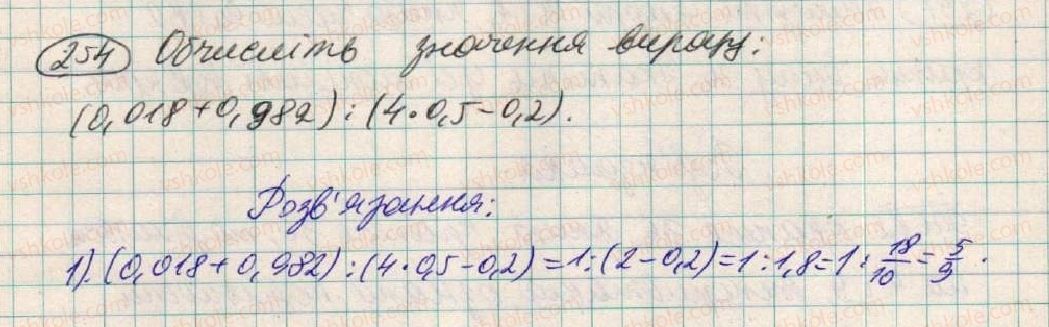 254 Обчисліть значення виразу:
(0,018+0,982):(4·0,5-0,2).
Розв'язання:
1).(0,018+0,982):(4·0,5-0,2)=1:(2-0,2)=1:1,8=1:18/10=5/9.